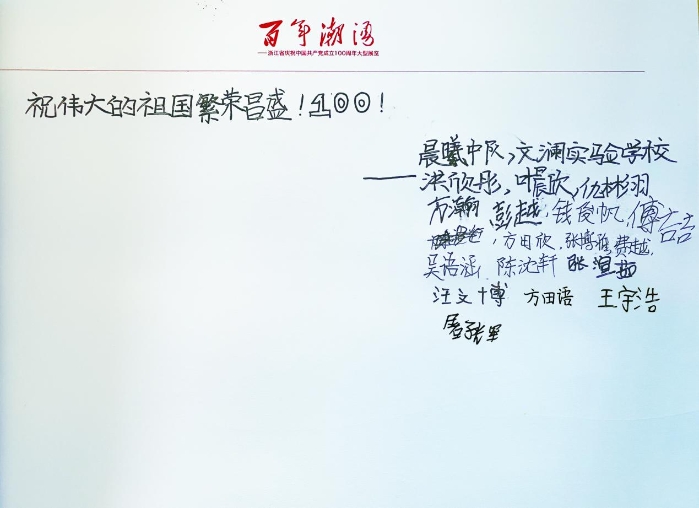 百年潮涌
——浙江省庆祝中国共产党成立100周年大型展览
祝伟大的祖国繁荣昌盛！100！
晨曦中队，文澜实验学校
——洪欣彤，叶晨欣，仇彬羽
方瀚 彭越，钱俊帆，傅
，方田欣，张博雅，费越，
吴语涵 陈沈轩 张渲茹
汪文博 方田语 王宇浩